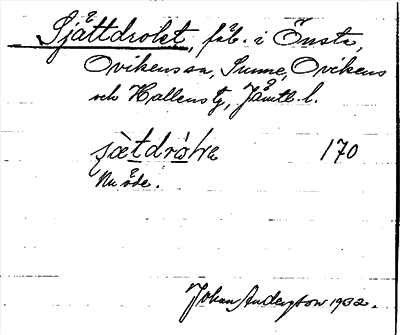 Sjåttdrolet, fäb. i Önsta,
Ovikens sn, Sunne, Ovikens
och Hallens tg, Jämtl. l.
170
Nu öde.
Johan Anderson 1932.